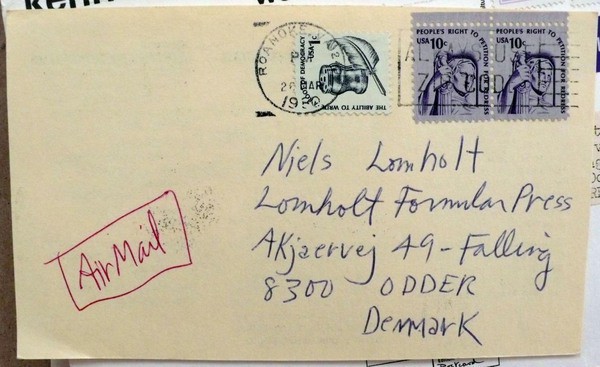 ROANOKE, VA
1980
THE ABILITY TO WRITE
OF DEMOCRACY
USA 1c
PEOPLE'S RIGHT TO PETITION FOR REDRESS
USA 10c
PEOPLE'S RIGHT TO PETITION FOR REDRESS
USA 10c
ZIP CODE
Niels Lomholt
Lomholt Formular Press
Akjaervej 49 - Falling
8300 ODDER
Denmark
Air Mail
Postcard